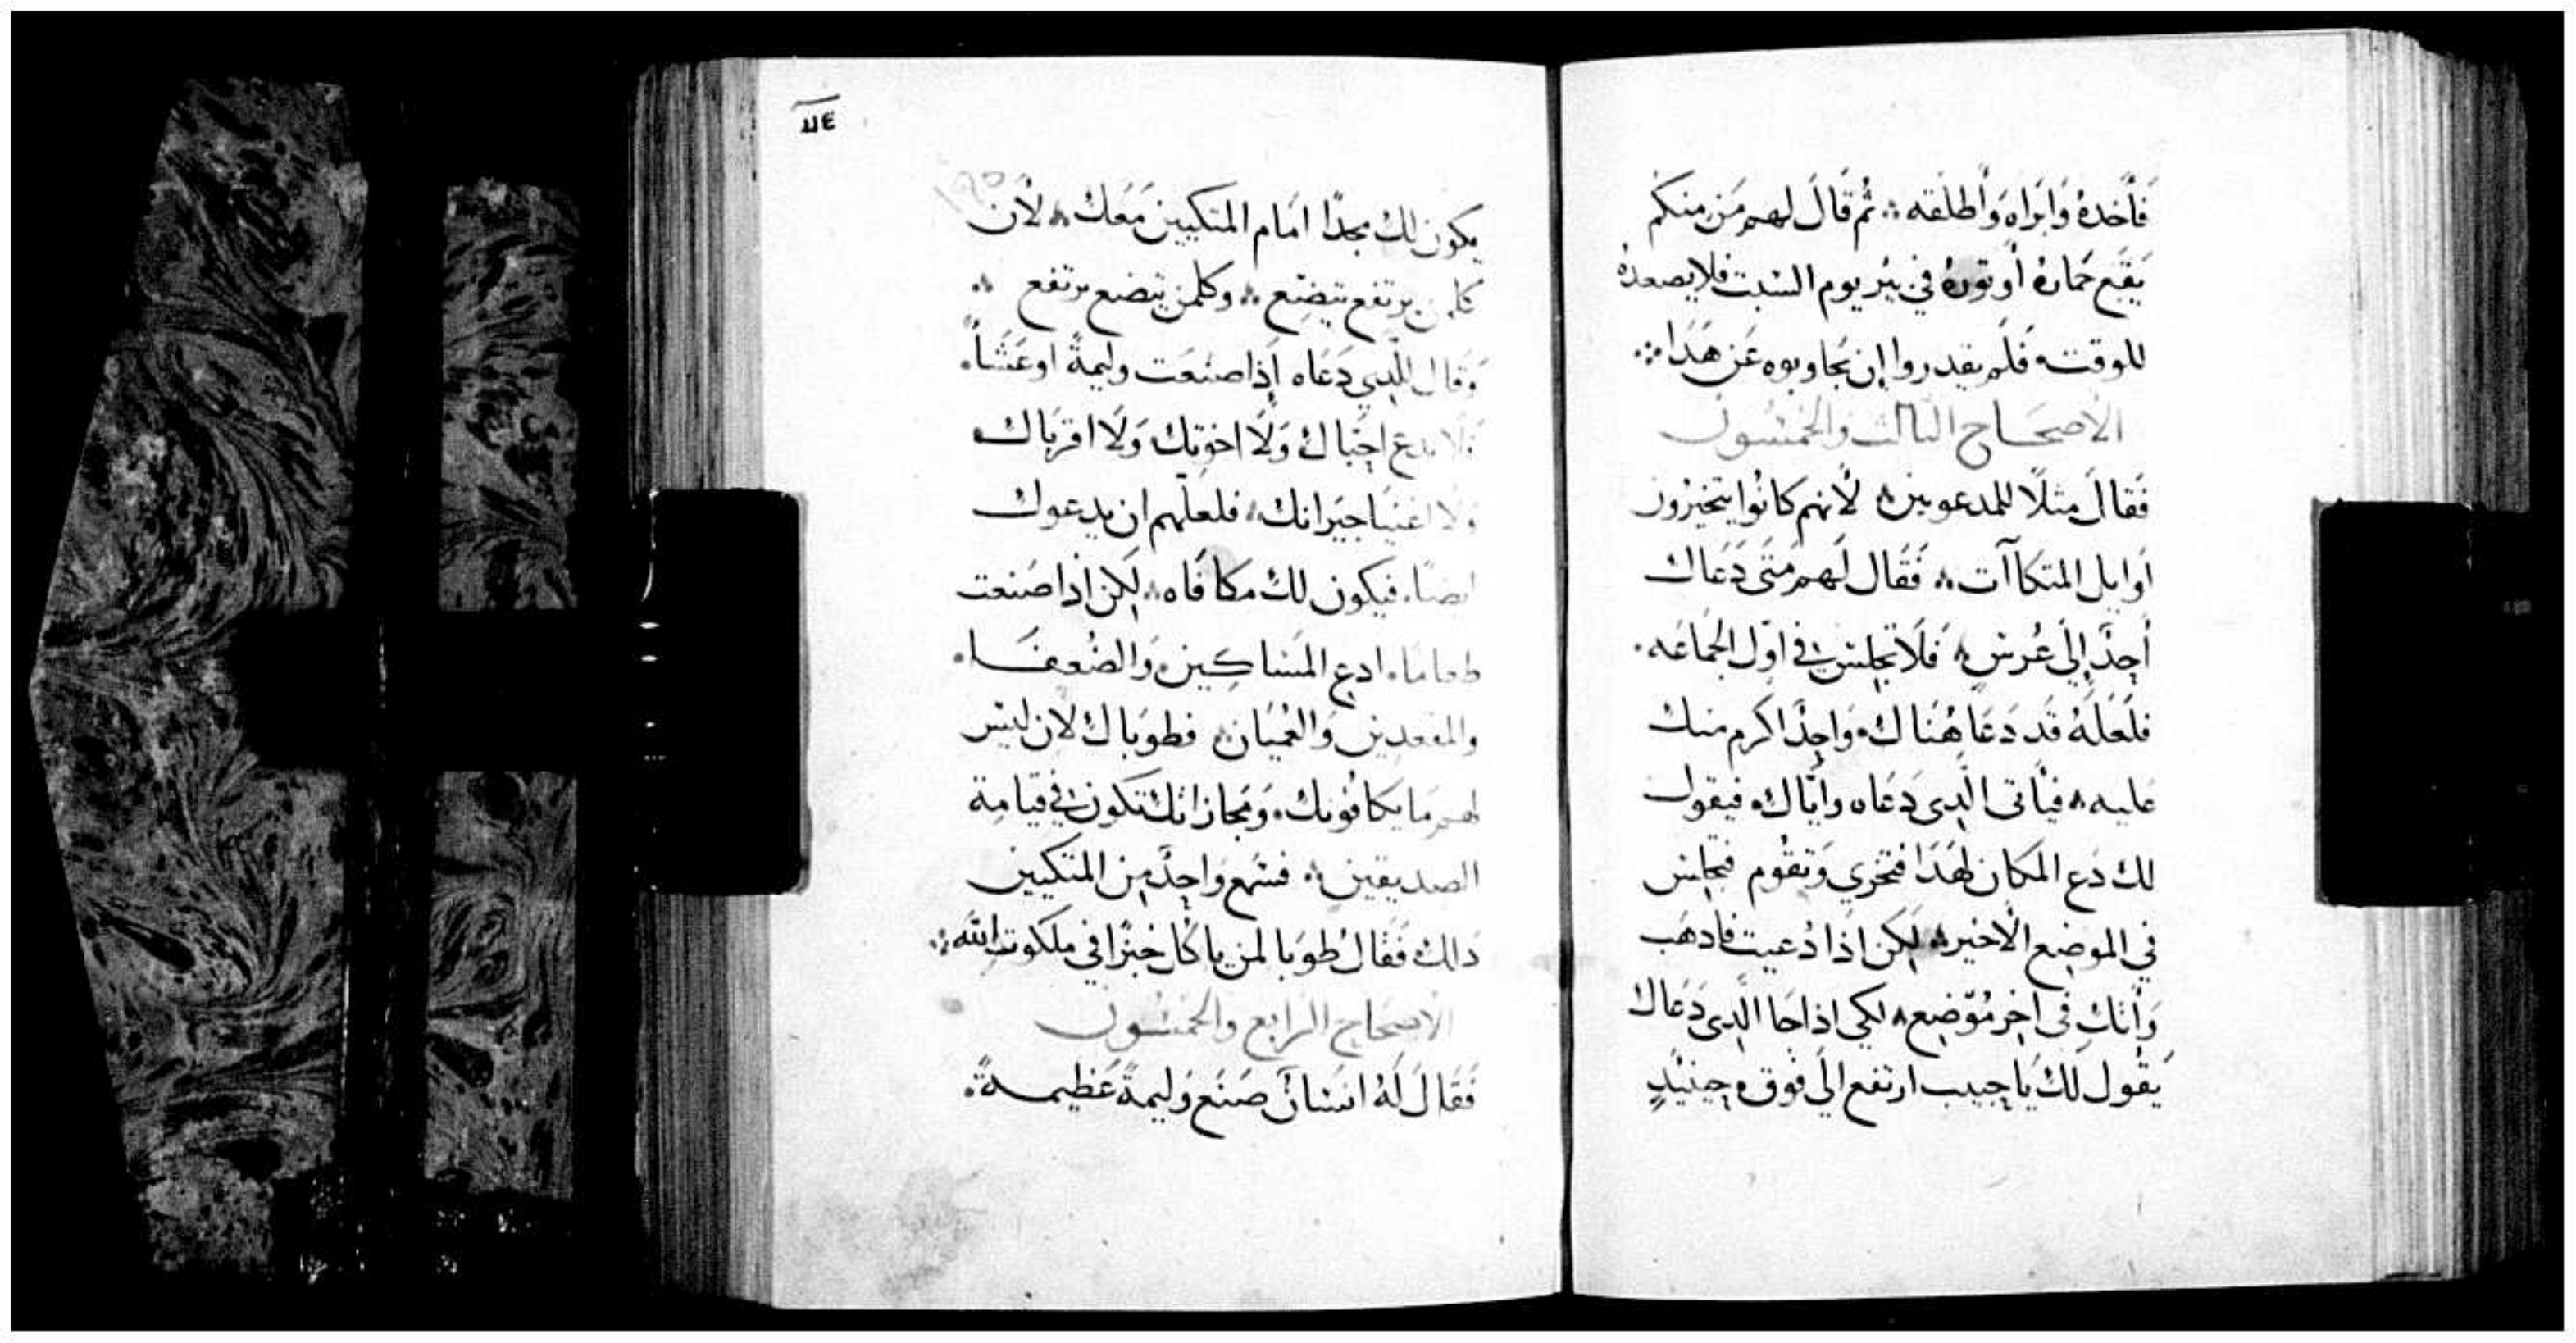 فَأَخَدهُ وَابرَاه وَأَطلَقه ؞ ثُم قَالَ لهم مَن منكم
يَقَع حَمارهُ أو تورهُ في بير يوم السَبت فلا يصعدهُ
للوقت ؞ فَلَم يقدروا إن يجاوبوه عَن هَدَا ؞
الأصحَاح التالت والخمسون
فَقالَ مثلًا للمدعوين ؞ لأنهم كانُوا يتخيرون
اَوايل المتكاآت ؞ فَقَال لَهم مَتَى دَعَاك
أحِدٌ إلَى عُرس ؞ فَلَا تجلس في اوّل الجمَاعَه .
فلَعَلهُ قَد دَعَا هُنَاك . وَاحِدًا اكرم منك
عليه ؞ فيأتى الَدِى دَعَاه وايّاك . فيقول
لك دَع المكان لهَدَا فتخزي وَتقُوم فتجلس
في الموضِع الأخير ؞ لَكن اذَا دُعيت فادهَب
وَأتكِ فى اخِر مُوّضِع ؞ لكى اذا جَا الَدِى دَعَاك
يَقُول لَكَ يَا حِبيب ارتفع الَى فَوق . حِينَيْدٍ
١١٤
١٩٥
يكون لك مجدًا امَام المتكيين مَعَك ؞ لأن
كلمن يرتفع يتضِع ؞ وكلمن يتضع يرتفع ؞
وَقال للَّدِي دَعَاه إذا صنَعَت وليمةً اوعَشَاً .
فَلا تدع احِبّاك وَلَا اخوَتِك وَلَا اقربَاك .
وَلا اغنيَا جيَرانك ؞ فلعلّهم ان يدعوك
ايضًا . فيكون لكَ مكافَاه ؞ لَكِن اذا صَنعت
طعامًا . ادعِ المَسَاكِين . وَالضُعفَا .
والمقعدين وَالعُميَان ؞ فطوَبَاك لأن ليس
لهم مَا يكافُونك . وَمجازاتك تكون في قيامة
الصديقين ؞ فسَمع وَاحِدٌ مِن المتكيين
دَالك فَقَال طُوَبَا لمن ياكُل خبزًا في ملكوت الله ؞
الأصحاح الرابع والخمسون
فَقَالَ لَهُ انسَانٌ صَنَع وَليمةً عَظيمةً .